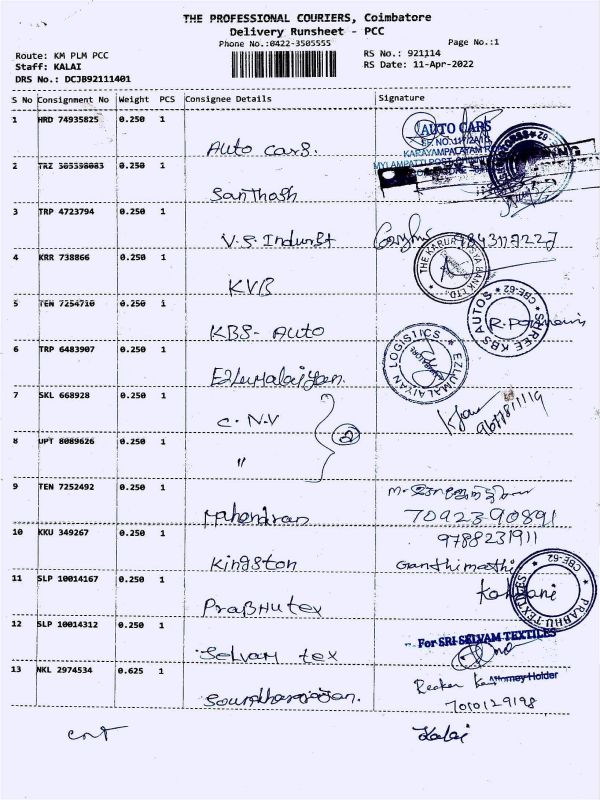 THE PROFESSIONAL COURIERS, Coimbatore
Delivery Runsheet - PCC
Phone No.:0422-3505555
Page No.:1
Route: KM PLM PCC
Staff: KALAI
DRS No.: DCJB92111401
RS No.: 921114
RS Date: 11-Apr-2022
S No Consignment No Weight PCS Consignee Details Signature
1 HRD 74935825 0.250 1
Auto cars.
AUTO CARS
2 TRZ 305398083 0.250 1
Santhosh
3 TRP 4723794 0.250 1
V.S. Indust 9843117227
4 KRR 738866 0.250 1
KVB
5 TEN 7254710 0.250 1
KBS- Auto
SHREE KBS AUTOS CBE-62
6 TRP 6483907 0.250 1
Ezlumalaiyan.
EZLUMALAIYAN LOGISTICS
7 SKL 668928 0.250 1
C. N.V
2
9677811119
8 UPT 8089626 0.250 1
"
9 TEN 7252492 0.250 1
Mahendran
7092390891
9788231911
10 KKU 349267 0.250 1
Kingston Gandhimathi
11 SLP 10014167 0.250 1
Prabhu tex
PRABHU TEXTILES CBE-62
12 SLP 10014312 0.250 1
Selvam tex
For SRI SELVAM TEXTILES
13 NKL 2974534 0.625 1
Attorney Holder
7010129198
Kalai